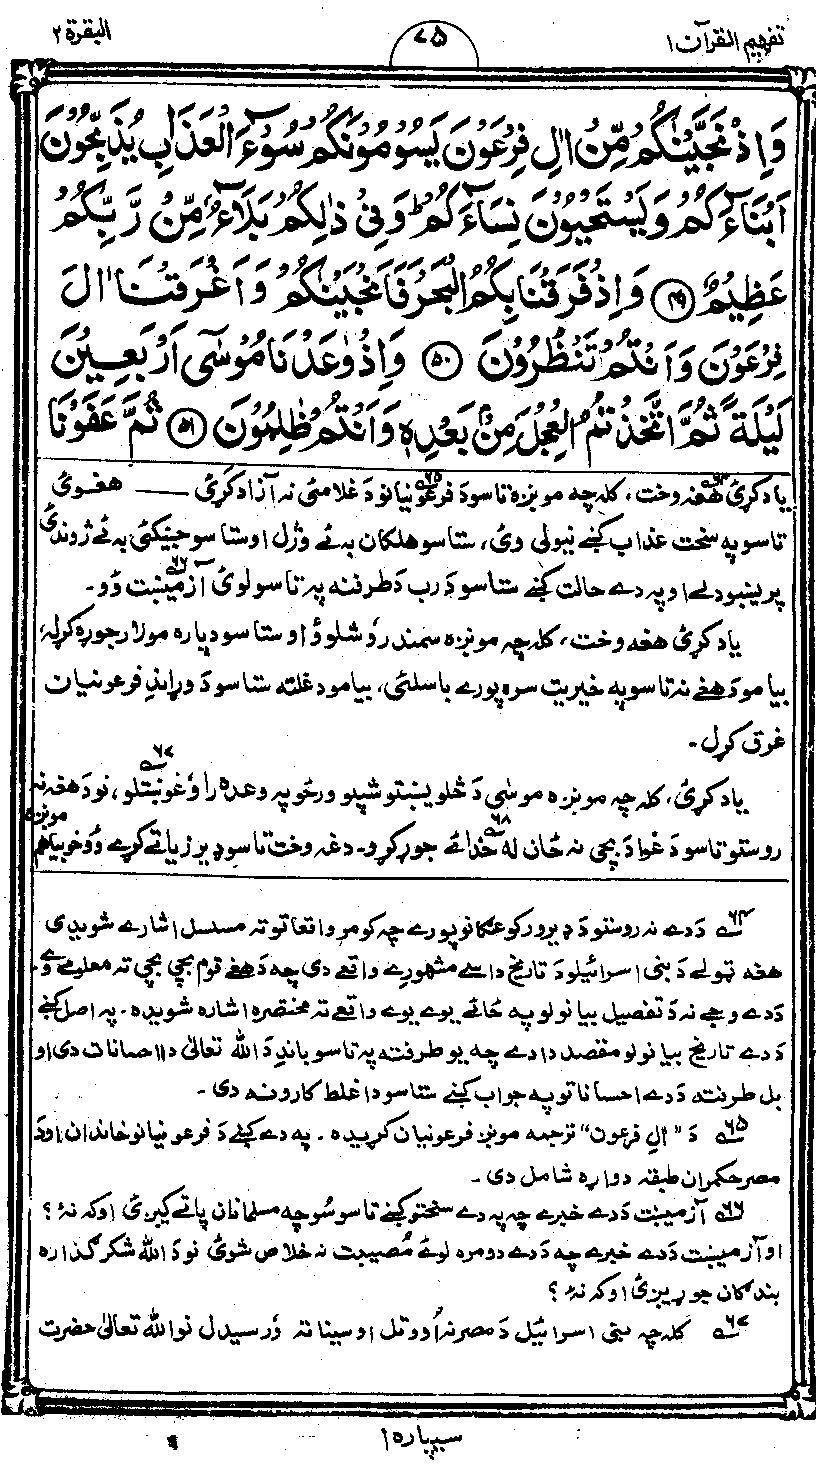 تفہیم القرآن ۱
۷۵
البقرة ۲
وَاِذْ نَجَّيْنٰكُمْ مِّنْ اٰلِ فِرْعَوْنَ يَسُوْمُوْنَكُمْ سُوْٓءَ الْعَذَابِ يُذَبِّحُوْنَ
اَبْنَآءَكُمْ وَيَسْتَحْيُوْنَ نِسَآءَكُمْ ؕ وَفِيْ ذٰلِكُمْ بَلَآءٌ مِّنْ رَّبِّكُمْ
عَظِيْمٌ ﴿۴۹﴾ وَاِذْ فَرَقْنَا بِكُمُ الْبَحْرَ فَاَنْجَيْنٰكُمْ وَاَغْرَقْنَآ اٰلَ
فِرْعَوْنَ وَاَنْتُمْ تَنْظُرُوْنَ ﴿۵۰﴾ وَاِذْ وٰعَدْنَا مُوْسٰٓى اَرْبَعِيْنَ
لَيْلَةً ثُمَّ اتَّخَذْتُمُ الْعِجْلَ مِنْۢ بَعْدِهٖ وَاَنْتُمْ ظٰلِمُوْنَ ﴿۵۱﴾ ثُمَّ عَفَوْنَا
یاد کړئ ۶۴ هغه وخت، کله چه مونږه تاسو دَ فرعونیانو ۶۵ دَ غلامئ نه آزاد کړئ —— هغوئ
تاسو په سخت عذاب کښے نیولی وئ، ستاسو هلکان به ئے وژل او ستاسو جینکئ به ئے ژوندئ
پریښودلے او په دے حالت کښے ستاسو دَ رب دَ طرفنه په تاسو لوئ آزمیښت ۶۶ وُو۔
یاد کړئ هغه وخت، کله چه مونږه سمندر وُشلوؤ او ستاسو دپاره مو لار جوړه کړله،
بیا مو دَ هغے نه تاسو په خیریت سره پورے باسلئ، بیا مو دغلته ستاسو دَ وړاندِ فرعونیان
غرق کړل۔
یاد کړئ، کله چه مونږه موسٰی دَ څلویښتو شپو ورځو په وعده راوُغوښتلو ۶۷، نو دَ هغه نه
روستو تاسو دَ غوا دَ بچی نه ځان له خدائے ۶۸ جوړ کړو۔ دغه وخت تاسو ډیر زیاتے کړے وُو خو بیا هم مونږه
۶۴ دَ دے نه روستو دَ ډیرو رکوعګانو پورے چه کومو واقعاتو ته مسلسل اشارے شویدی
هغه ټولے دَ بنی اسرائیلو دَ تاریخ داسے مشهورے واقعے دی چه دَ هغے قوم بچی بچی ته معلومے وے۔
دَ دے وجے نه دَ تفصیل بیانولو په ځائے یوے یوے واقعے ته مختصره اشاره شویده۔ په اصل کښے
دَ دے تاریخ بیانولو مقصد دا دے چه یو طرفته په تاسو باندِ دَ الله تعالٰی دا احسانات دی او
بل طرفته دَ دے احساناتو په جواب کښے ستاسو دا غلط کارونه دی۔
۶۵ دَ ”اٰلِ فرعون“ ترجمه مونږ فرعونیان کړیده۔ په دے کښے دَ فرعونیانو خاندان او دَ
مصر حکمران طبقه دواړه شامل دی۔
۶۶ آزمیښت دَ دے خبرے چه په دے سختو کښے تاسو سُوچه مسلمانان پاتے کیږئ او که نه؟
او آزمیښت دَ دے خبرے چه دَ دے دومره لوئے مُصیبت نه خلاص شوئ نو دَ الله شکر گذاره
بندګان جوړیږئ او که نه؟
۶۷ کله چه بنی اسرائیل دَ مصر نه اُووتل او سینا ته وُرسیدل نو الله تعالٰی حضرت
سیپاره ۱